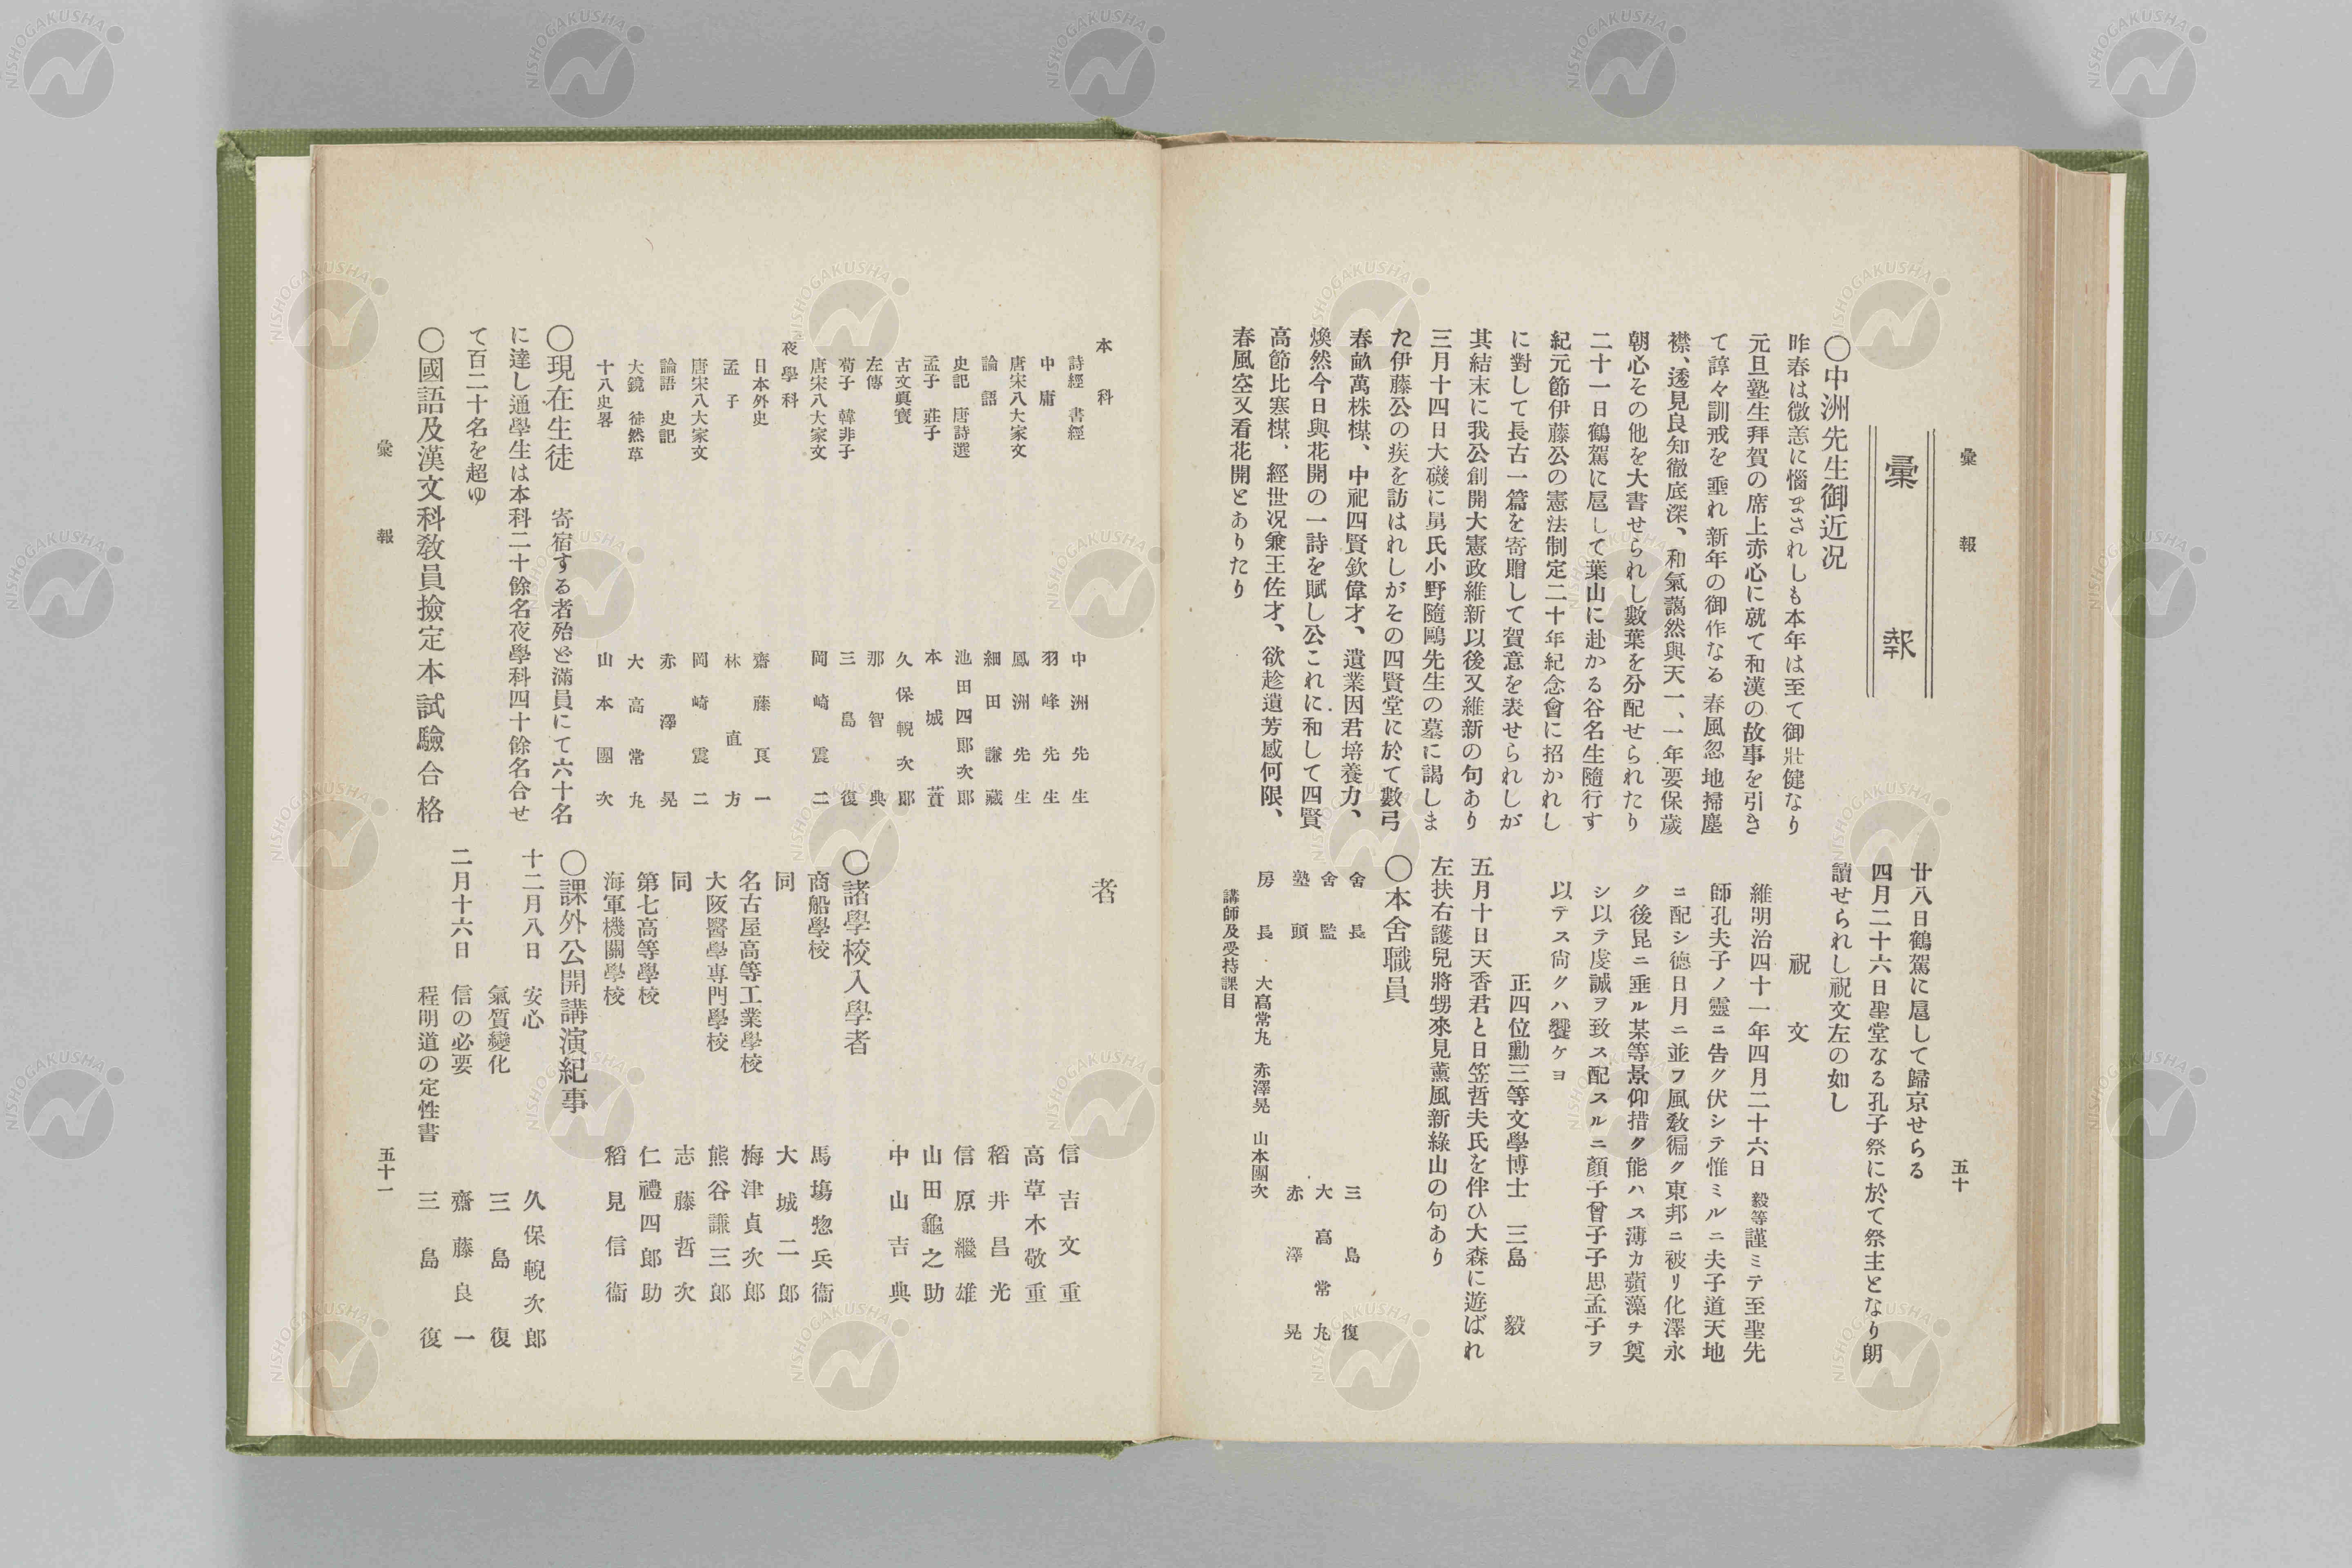 彙報
五十
彙報
〇中洲先生御近况
昨春は微恙に惱まされしも本年は至て御壯健なり
元旦塾生拜賀の席上赤心に就て和漢の故事を引き
て諄々訓戒を垂れ新年の御作なる春風忽地掃塵
襟、透見良知徹底深、和氣藹然與天一、一年要保歲
朝心その他を大書せられし數葉を分配せられたり
二十一日鶴駕に扈して葉山に赴かる谷名生隨行す
紀元節伊藤公の憲法制定二十年紀念會に招かれし
に對して長古一篇を寄贈して賀意を表せられしが
其結末に我公創開大憲政維新以後又維新の句あり
三月十四日大磯に舅氏小野隨鷗先生の墓に謁しま
た伊藤公の疾を訪はれしがその四賢堂に於て數弓
春畝萬株楳、中祀四賢欽偉才、遺業因君培養力、
煥然今日與花開の一詩を賦し公これに和して四賢
高節比寒楳、經世况兼王佐才、欲趁遺芳感何限、
春風空又看花開とありたり
廿八日鶴駕に扈して歸京せらる
四月二十六日聖堂なる孔子祭に於て祭主となり朗
讀せられし祝文左の如し
祝文
維明治四十一年四月二十六日 毅等謹ミテ至聖先
師孔夫子ノ靈ニ告グ伏シテ惟ミルニ夫子道天地
ニ配シ德日月ニ並フ風敎徧ク東邦ニ被リ化澤永
ク後昆ニ垂ル某等景仰措ク能ハス薄カ蘋藻ヲ奠
シ以テ虔誠ヲ致ス配スルニ顏子曾子子思孟子ヲ
以テス尙クハ饗ケヨ
正四位勳三等文學博士 三島 毅
五月十日天香君と日笠哲夫氏を伴ひ大森に遊ばれ
左扶右護兒將甥來見薰風新綠山の句あり
〇本舍職員
舍長 三島復
舍監 大高常丸
塾頭 赤澤晃
房長 大高常丸 赤澤晃 山本團次
講師及受持課目
本科
詩經 書經 中洲先生
中庸 羽峰先生
唐宋八大家文 鳳洲先生
論語 細田謙藏
史記 唐詩選 池田四郎次郎
孟子 莊子 本城蕡
古文眞寶 久保輗次郎
左傳 那智典
荀子 韓非子 三島復
唐宋八大家文 岡崎震二
夜學科
日本外史 齋藤良一
孟子 林直方
唐宋八大家文 岡崎震二
論語 史記 赤澤晃
大鏡 徒然草 大高常丸
十八史畧 山本團次
〇現在生徒 寄宿する者殆ど滿員にて六十名
に達し通學生は本科二十餘名夜學科四十餘名合せ
て百二十名を超ゆ
〇國語及漢文科敎員撿定本試驗合格
者
信吉文重
高草木敬重
稻井昌光
信原繼雄
山田龜之助
中山吉典
〇諸學校入學者
商船學校 馬塲惣兵衞
同 大城二郎
名古屋高等工業學校 梅津貞次郎
大阪醫學専門學校 熊谷謙三郎
同 志藤哲次
第七高等學校 仁禮四郎助
海軍機關學校 稻見信衞
〇課外公開講演紀事
十二月八日 安心 久保輗次郎
氣質變化 三島復
二月十六日 信の必要 齋藤良一
程明道の定性書 三島復
彙報
五十一
NISHOGAKUSHA